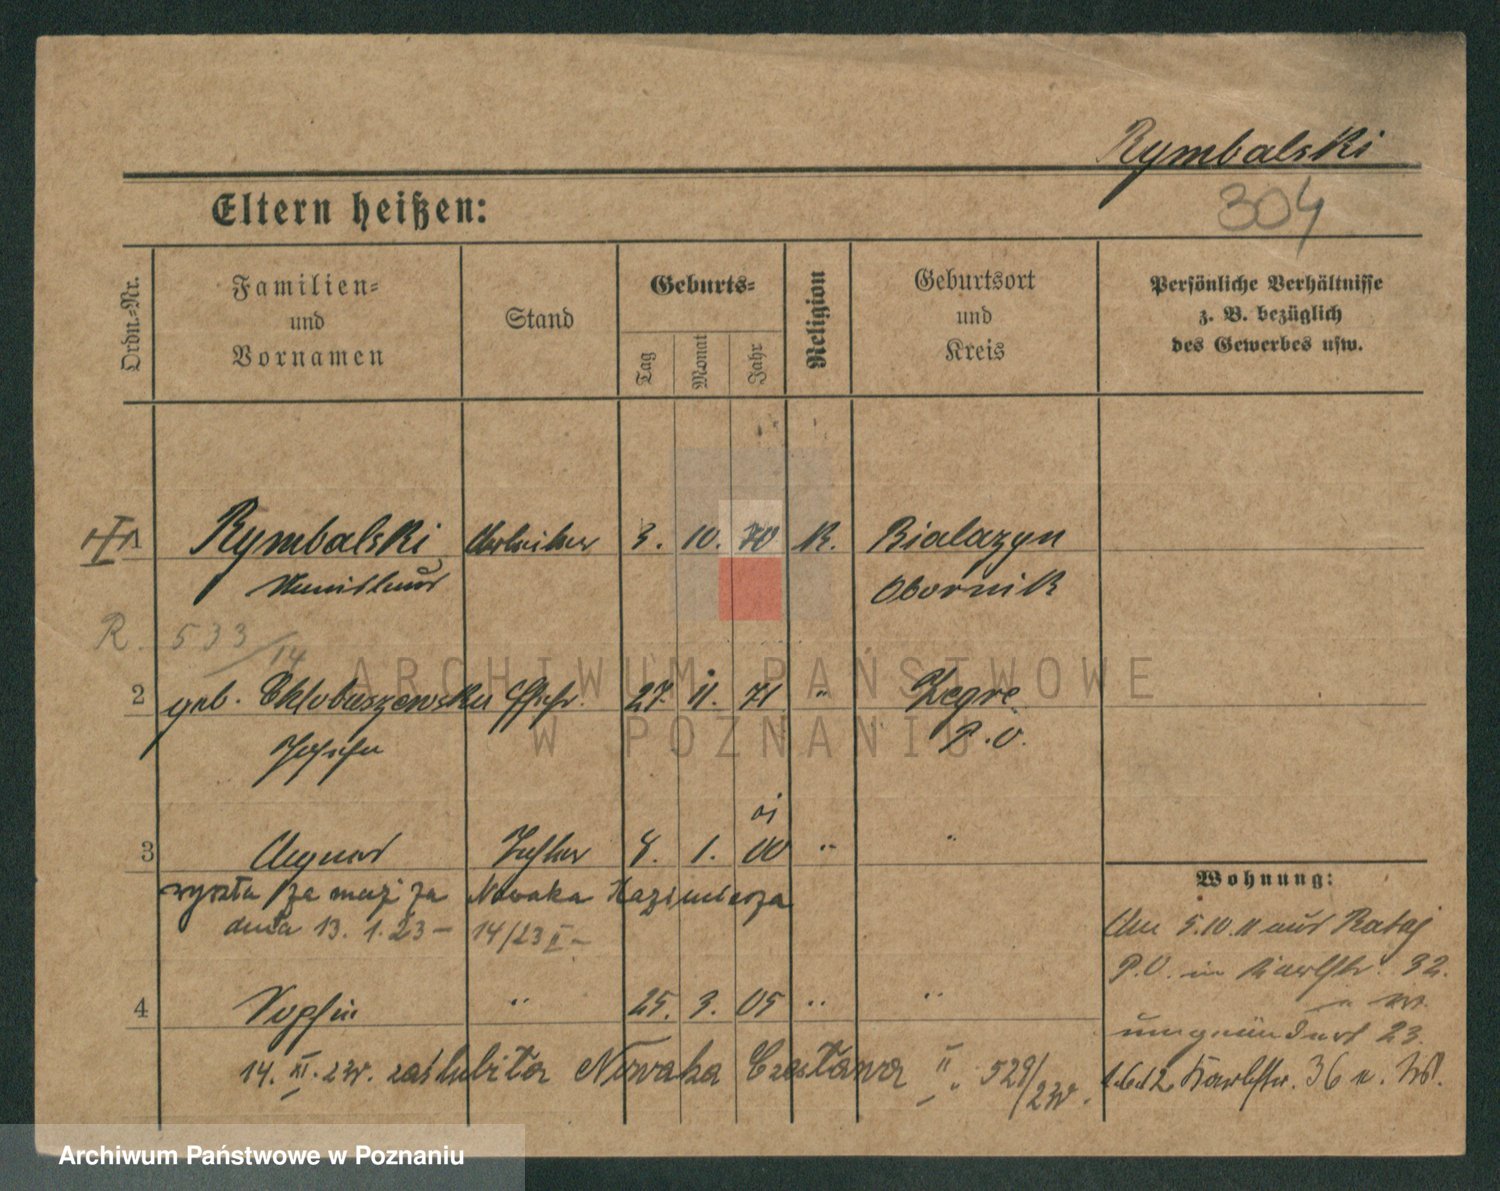 Rymbalski
304
Eltern heißen:
Ordn.-Nr.
Familien-
und
Vornamen
Stand
Geburts-
Tag
Monat
Jahr
Religion
Geburtsort
und
Kreis
Persönliche Verhältnisse
z. B. bezüglich
des Gewerbes usw.
1 Rymbalski Arbeiter 3. 10. 70 K. Bialazyn
Obornik
R 533/14
2 geb. Chlobuszewska Ehefr. 27. 11. 71 " Zegre
Josefa P.O.
01
3 Agnes Tochter 8. 1. 00 " "
wyszła za mąż za Nowaka Kazimierza
dnia 13. 1. 23 – 14/23 II –
4 Sophie " 25. 3. 05 " "
14. XI. zaślubiła Nowaka Czesława II. 529/
Wohnung:
Am 5.10.11 aus Rataj
P.O. in 32.
23.
Karlstr. 36
ARCHIWUM PAŃSTWOWE
W POZNANIU
Archiwum Państwowe w Poznaniu